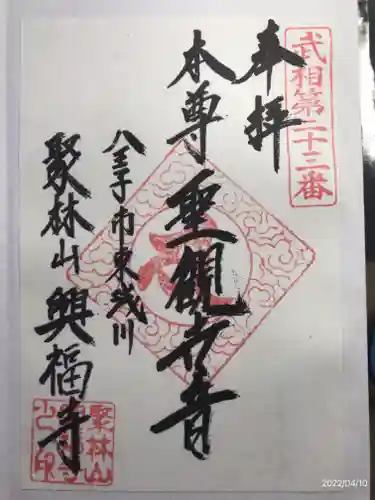 武相第二十二番
奉拝
本尊聖観世音
八王子市東浅川
聚林山興福寺
2022/04/10